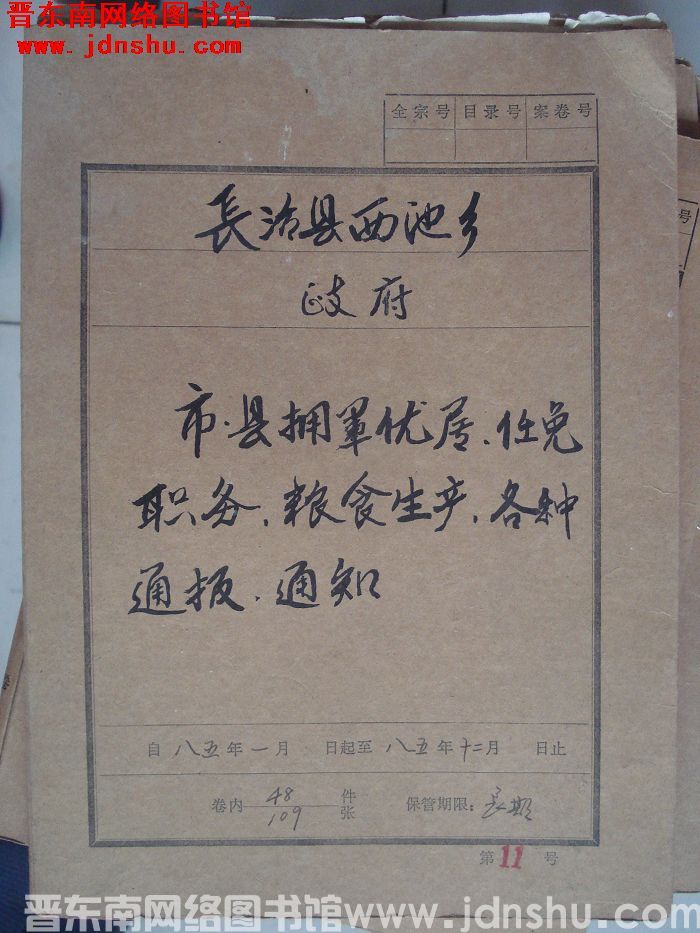 晋东南网络图书馆
www.jdnshu.com
全宗号 目录号 案卷号
長治县西池乡
政府
市.县拥軍优居、任免
职务、粮食生产、各种
通报、通知
自八五年一月 日起至八五年十二月 日止
卷内 48 件 109 张 保管期限：长期
第11号
晋东南网络图书馆 www.jdnshu.com
号